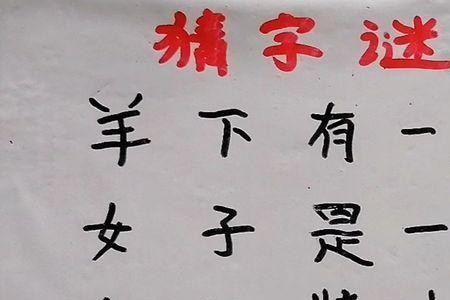 猜字谜
羊下有一
女子是一